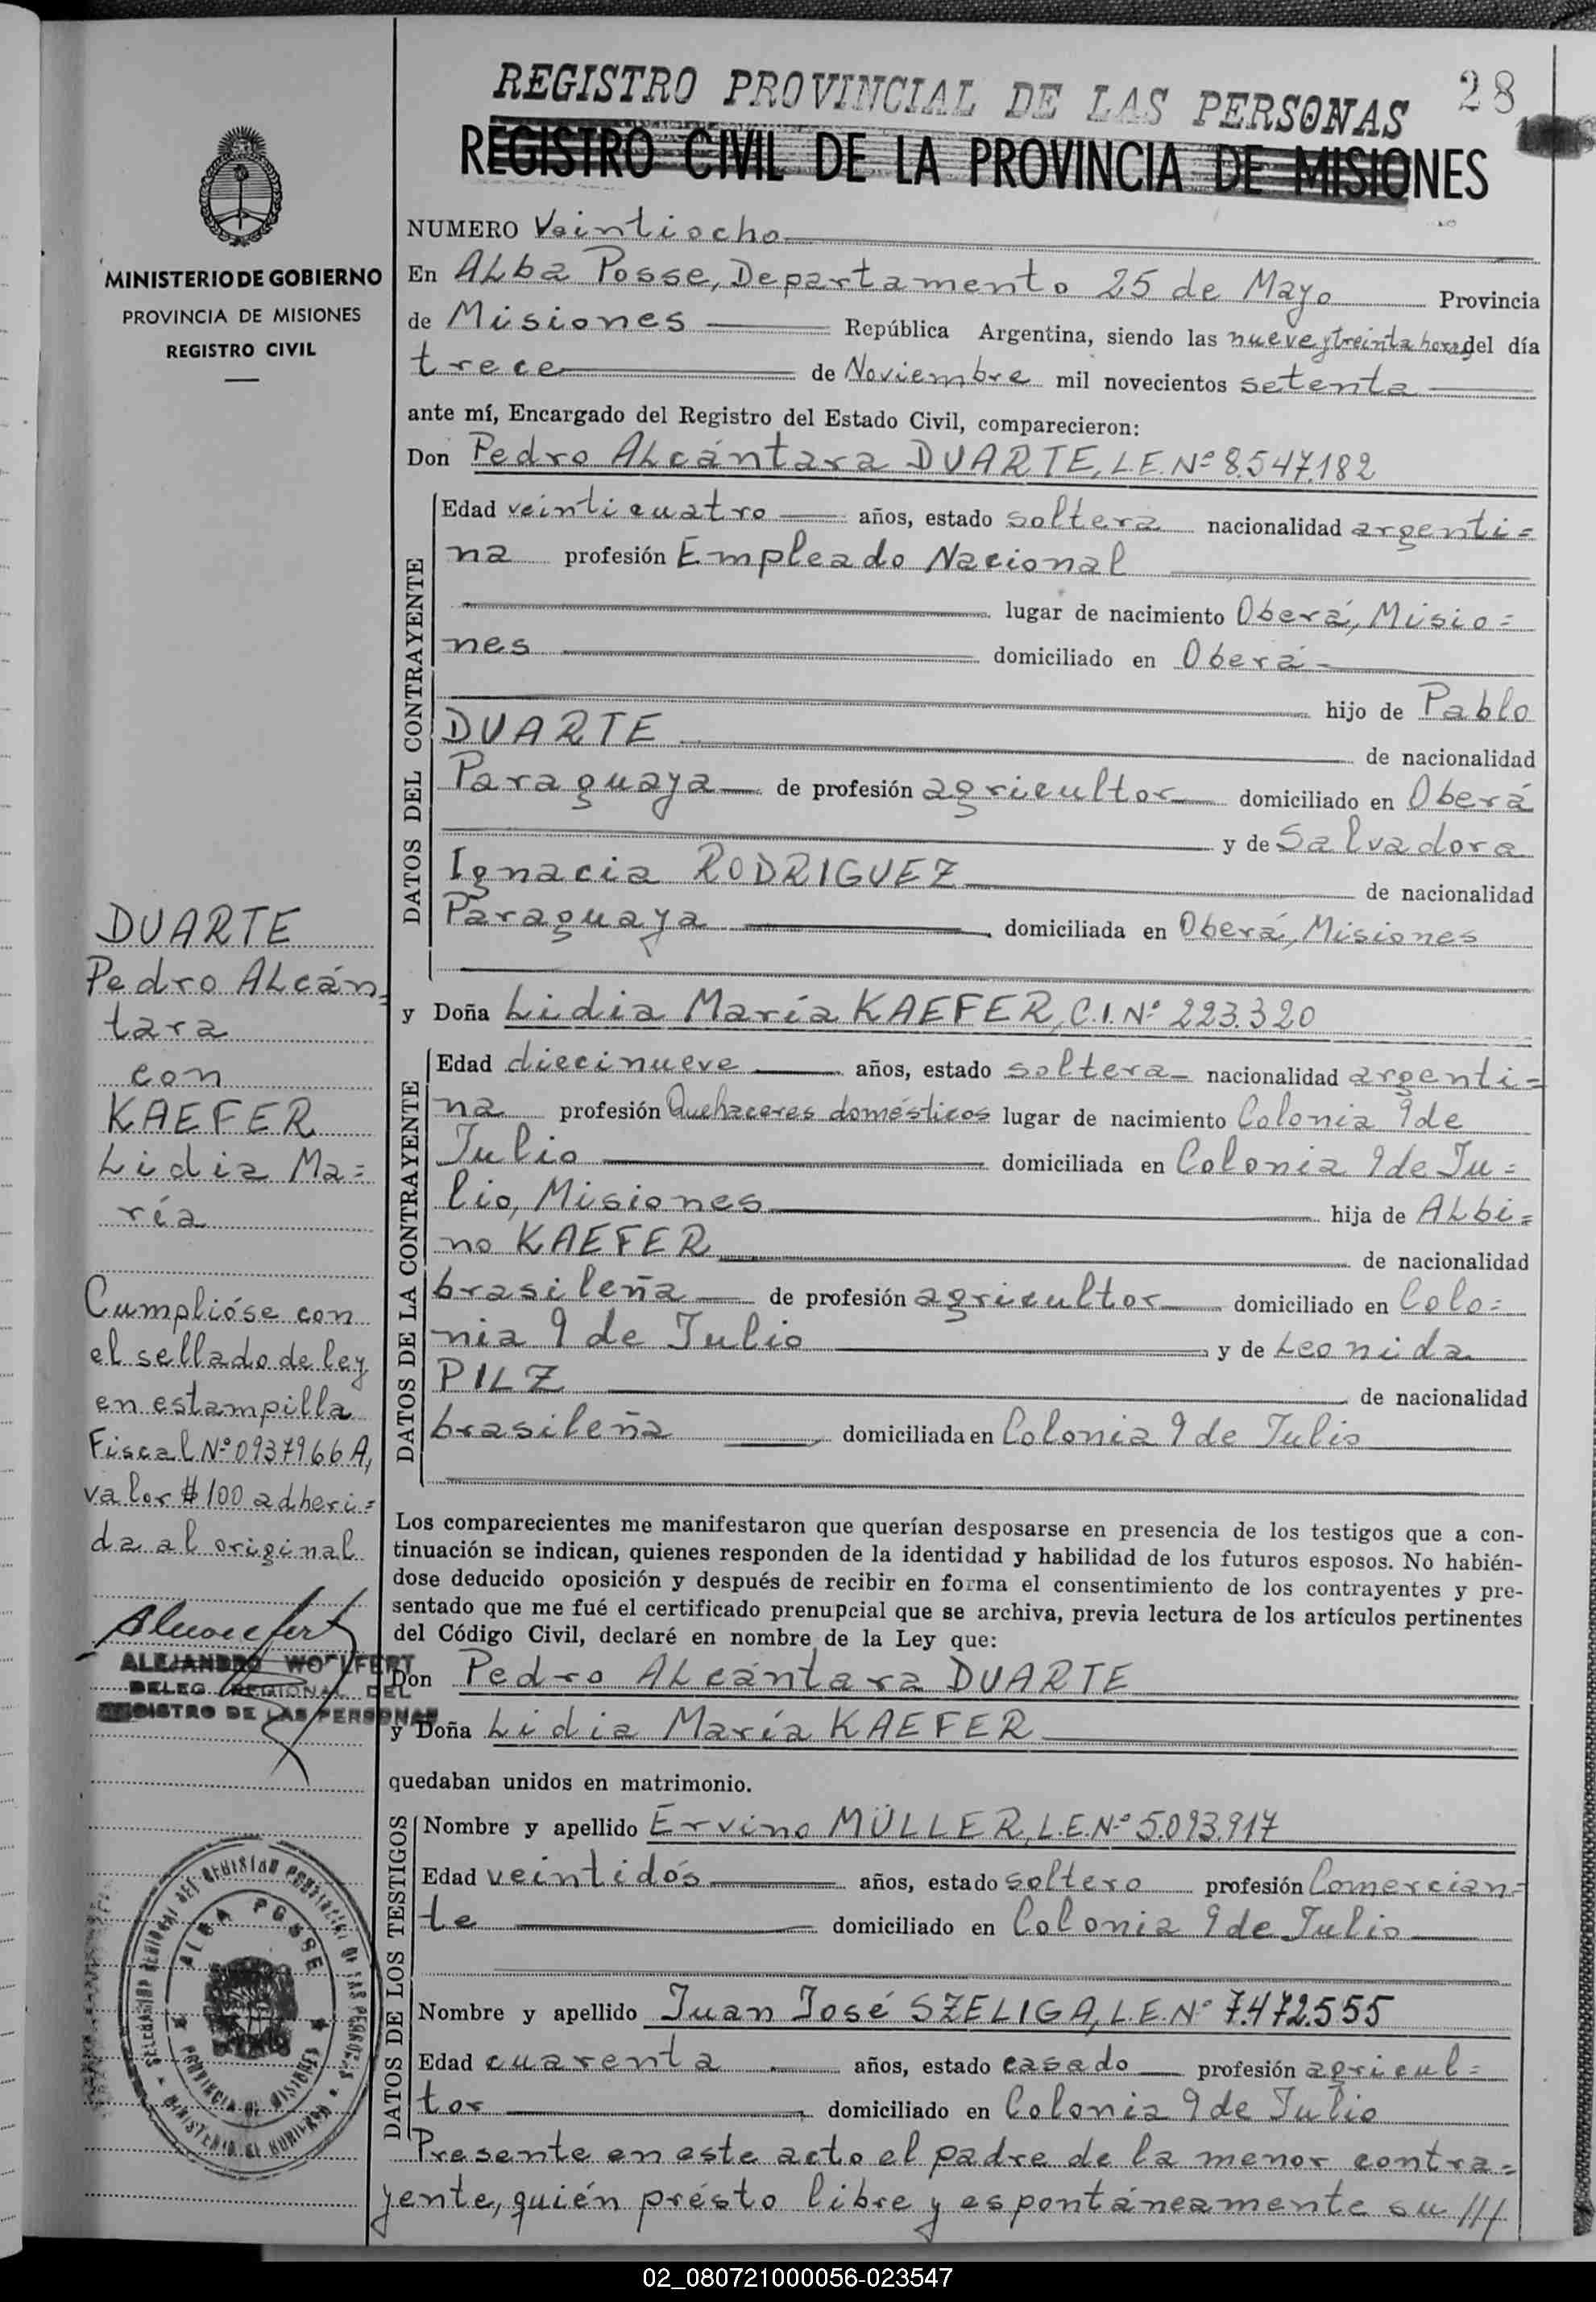 REGISTRO PROVINCIAL DE LAS PERSONAS
28
REGISTRO CIVIL DE LA PROVINCIA DE MISIONES
MINISTERIO DE GOBIERNO
PROVINCIA DE MISIONES
REGISTRO CIVIL
NUMERO Veintiocho
En Alba Posse, Departamento 25 de Mayo Provincia
de Misiones República Argentina, siendo las nueve y treinta horas del día
trece de Noviembre mil novecientos setenta
ante mí, Encargado del Registro del Estado Civil, comparecieron:
Don Pedro Alcántara DUARTE, L.E. Nº 8.547.182
DATOS DEL CONTRAYENTE
Edad veinticuatro años, estado soltera nacionalidad argenti=
na profesión Empleado Nacional
lugar de nacimiento Oberá, Misio=
nes domiciliado en Oberá
hijo de Pablo
DUARTE de nacionalidad
Paraguaya de profesión agricultor domiciliado en Oberá
y de Salvadora
Ignacia RODRIGUEZ de nacionalidad
Paraguaya domiciliada en Oberá, Misiones
y Doña Lidia María KAEFER, C.I. Nº 223.320
DATOS DE LA CONTRAYENTE
Edad diecinueve años, estado soltera nacionalidad argenti=
na profesión Quehaceres domésticos lugar de nacimiento Colonia 9 de
Julio domiciliada en Colonia 9 de Ju=
lio, Misiones hija de Albi=
no KAEFER de nacionalidad
brasileña de profesión agricultor domiciliado en Colo=
nia 9 de Julio y de Leonida
PILZ de nacionalidad
brasileña domiciliada en Colonia 9 de Julio
Los comparecientes me manifestaron que querían desposarse en presencia de los testigos que a con-
tinuación se indican, quienes responden de la identidad y habilidad de los futuros esposos. No habién-
dose deducido oposición y después de recibir en forma el consentimiento de los contrayentes y pre-
sentado que me fué el certificado prenupcial que se archiva, previa lectura de los artículos pertinentes
del Código Civil, declaré en nombre de la Ley que:
Don Pedro Alcántara DUARTE
y Doña Lidia María KAEFER
quedaban unidos en matrimonio.
DATOS DE LOS TESTIGOS
Nombre y apellido Ervino MÜLLER, L.E. Nº 5.093.917
Edad veintidós años, estado soltero profesión Comercian=
te domiciliado en Colonia 9 de Julio
Nombre y apellido Juan José SZELIGA, L.E. Nº 7.472.555
Edad cuarenta años, estado casado profesión agricul=
tor domiciliado en Colonia 9 de Julio
Presente en este acto el padre de la menor contra=
yente, quién présto libre y espontáneamente su ///
DUARTE
Pedro Alcán=
tara
con
KAEFER
Lidia Ma=
ría
Cumplióse con
el sellado de ley
en estampilla
Fiscal Nº 0937966 A,
valor $ 100 adheri=
da al original
ALEJANDRO WOLFERT
DELEG. REGIONAL DEL
REGISTRO DE LAS PERSONAS
DELEGACION REGIONAL DEL REGISTRO PROVINCIAL DE LAS PERSONAS
ALBA POSSE
PROVINCIA DE MISIONES
MINISTERIO DE GOBIERNO
02_080721000056-023547